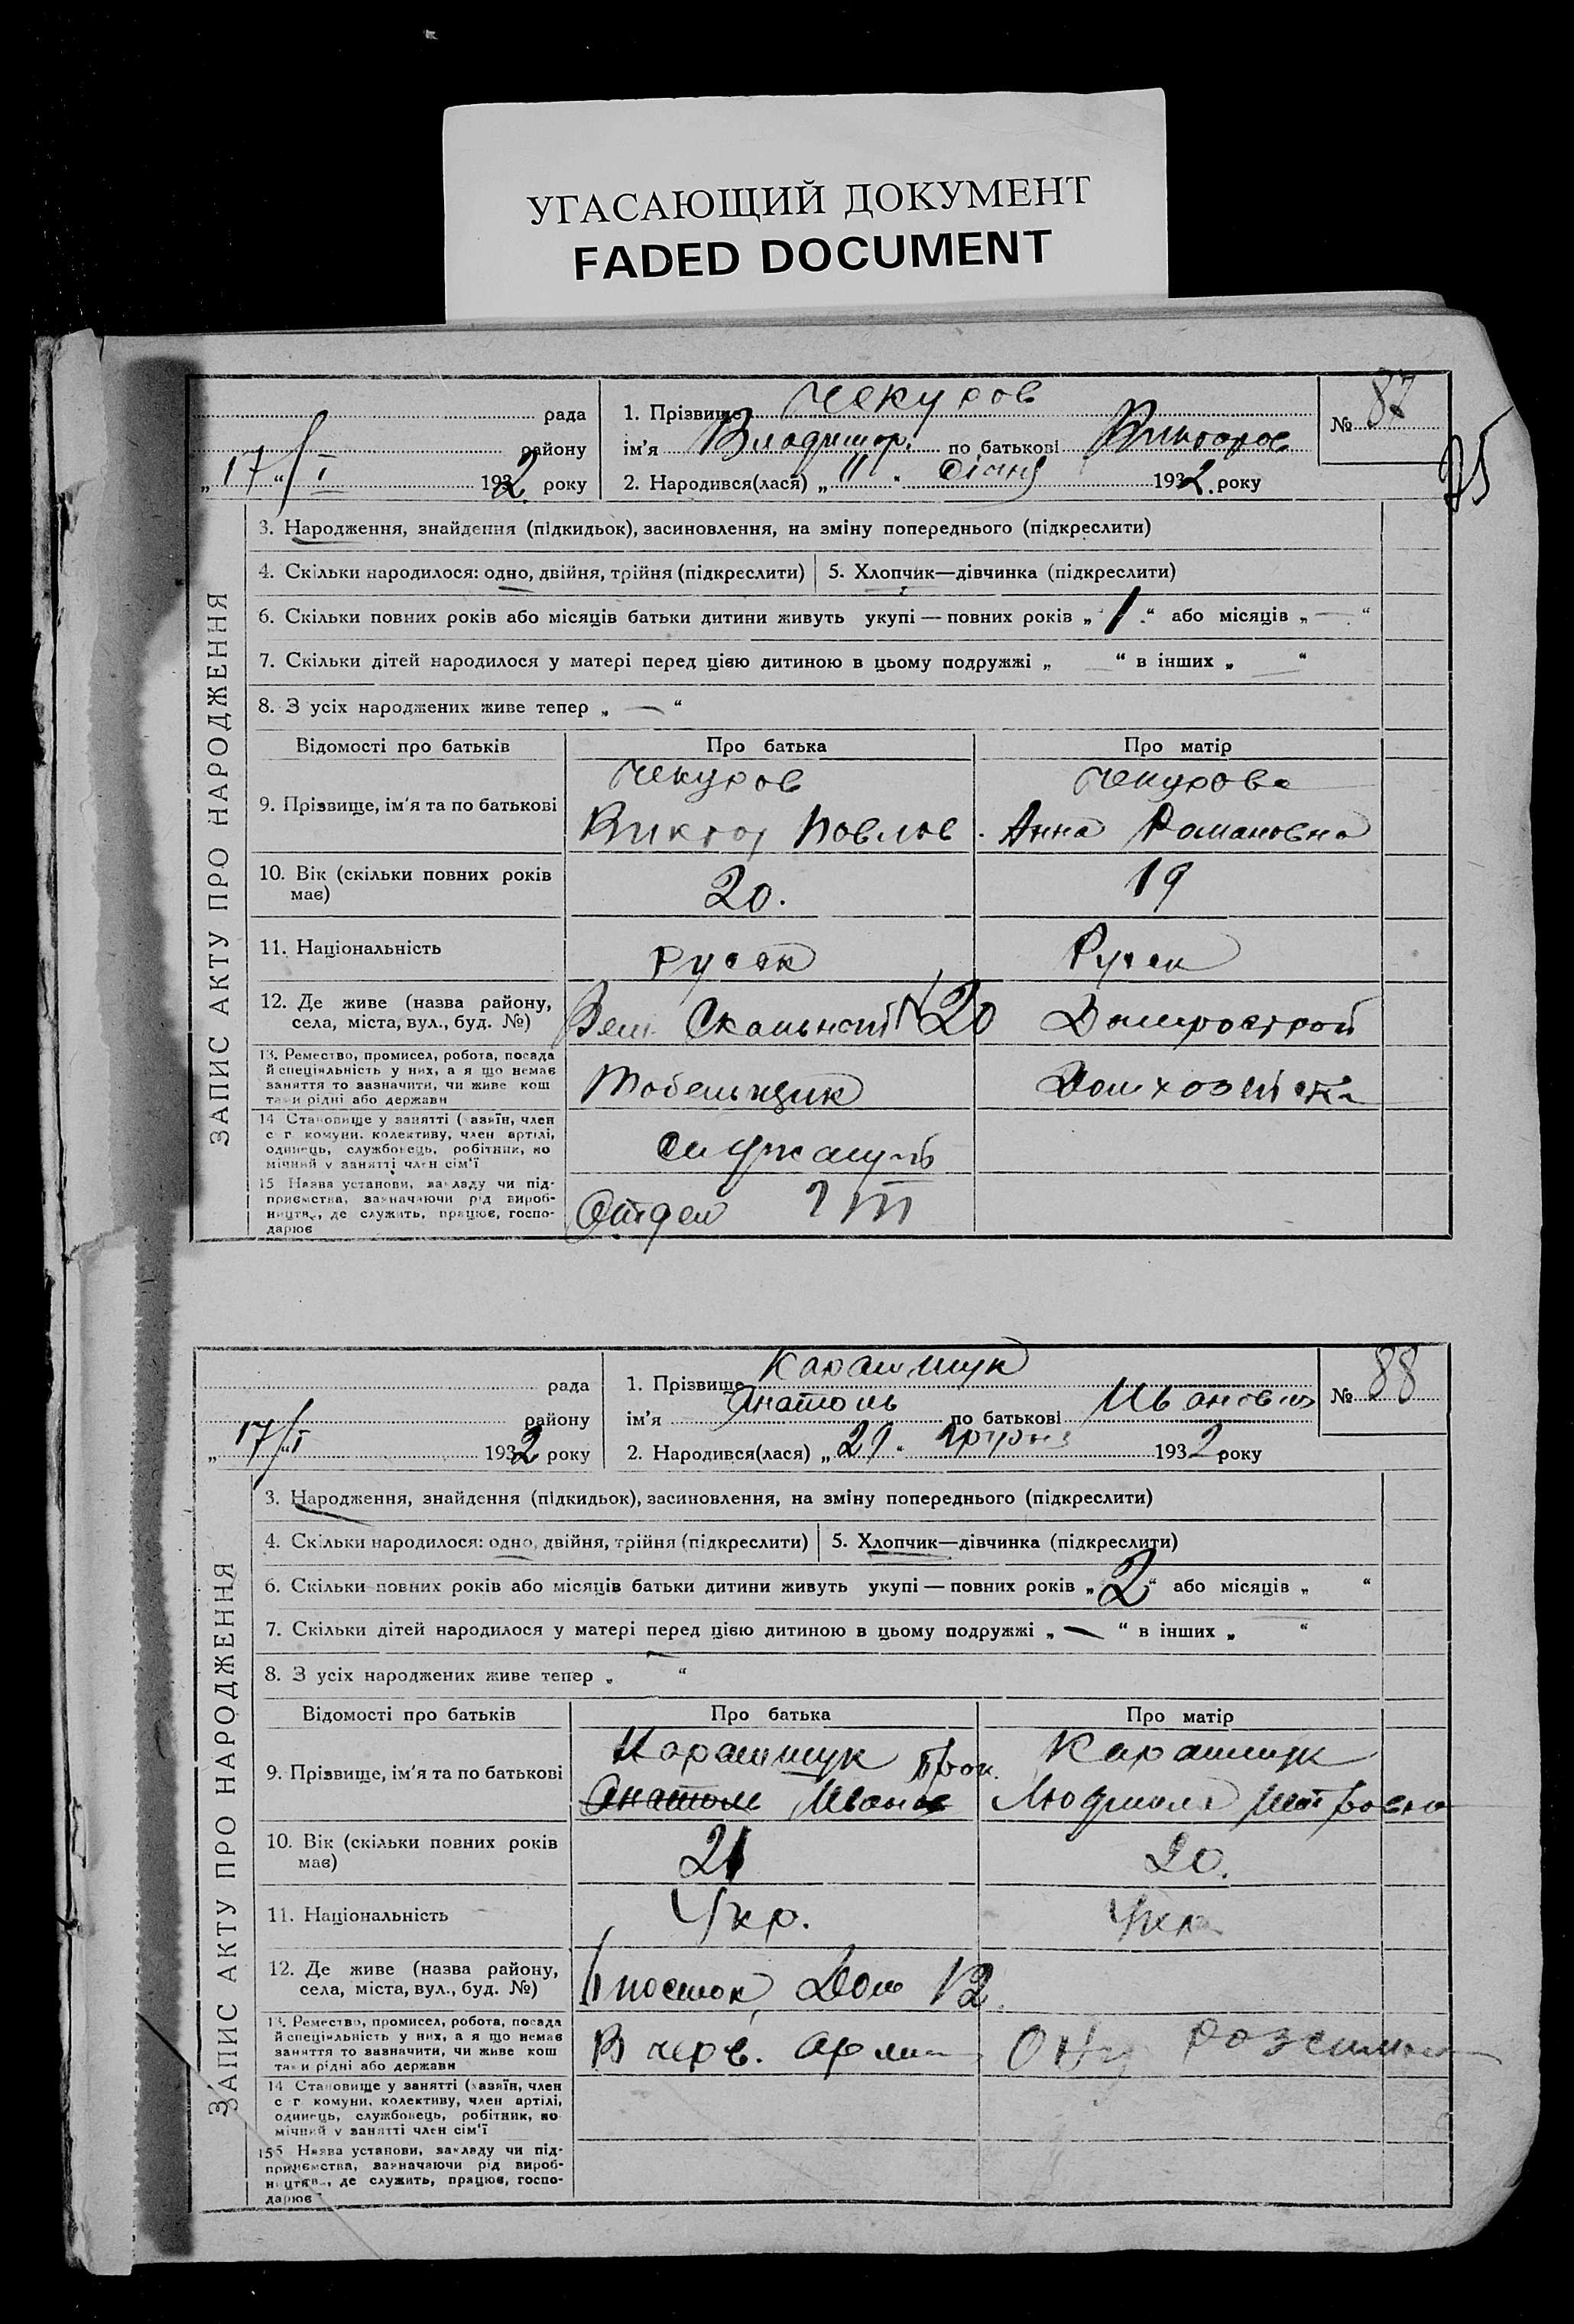 УГАСАЮЩИЙ ДОКУМЕНТ
FADED DOCUMENT
25
ЗАПИС АКТУ ПРО НАРОДЖЕННЯ
рада
району
„17“/I 1932 року
1. Прізвище Чекуров
ім'я Владимир. по батькові Викторов
2. Народився(лася) „11“ січня 1932 року
№ 87
3. Народження, знайдення (підкидьок), засиновлення, на зміну попереднього (підкреслити)
4. Скільки народилося: одно, двійня, трійня (підкреслити)
5. Хлопчик—дівчинка (підкреслити)
6. Скільки повних років або місяців батьки дитини живуть укупі — повних років „1“ або місяців „—“
7. Скільки дітей народилося у матері перед цією дитиною в цьому подружжі „—“ в інших „—“
8. З усіх народжених живе тепер „—“
Відомості про батьків
Про батька
Про матір
9. Прізвище, ім'я та по батькові
Чекуров
Виктор Павлов
Чекурова
Анна Романовна
10. Вік (скільки повних років має)
20.
19
11. Національність
Русак
Русак
12. Де живе (назва району,
села, міста, вул., буд. №)
20
Днепрострой
13. Ремество, промисел, робота, посада
й спеціяльність у них, а я що немає
заняття то зазначити, чи живе кош
тами рідні або держави
Табельщик
Домхозяйка
14 Становище у занятті (хазяїн, член
с г комуни, колективу, член артілі,
одинець, службовець, робітник, по
мічний у занятті член сім'ї
Служащий
15 Назва установи, закладу чи під-
приємства, зазначаючи рід вироб-
ництва, де служить, працює, госпо-
дарює
Отдел
ЗАПИС АКТУ ПРО НАРОДЖЕННЯ
рада
району
„17“/I 1932 року
1. Прізвище Карашчук
ім'я Анатоль по батькові Иванович
2. Народився(лася) „29“ 1932 року
№ 88
3. Народження, знайдення (підкидьок), засиновлення, на зміну попереднього (підкреслити)
4. Скільки народилося: одно, двійня, трійня (підкреслити)
5. Хлопчик—дівчинка (підкреслити)
6. Скільки повних років або місяців батьки дитини живуть укупі — повних років „2“ або місяців „ “
7. Скільки дітей народилося у матері перед цією дитиною в цьому подружжі „—“ в інших „ “
8. З усіх народжених живе тепер „ “
Відомості про батьків
Про батька
Про матір
9. Прізвище, ім'я та по батькові
Карашчук
Анатоль Иванов
Карашчук
Людмила Петровна
10. Вік (скільки повних років має)
21
20.
11. Національність
Укр.
Укр
12. Де живе (назва району,
села, міста, вул., буд. №)
6 поселок, Дом 12
13. Ремество, промисел, робота, посада
й спеціяльність у них, а я що немає
заняття то зазначити, чи живе кош
тами рідні або держави
В черв. армии
14 Становище у занятті (хазяїн, член
с г комуни, колективу, член артілі,
одинець, службовець, робітник, по
мічний у занятті член сім'ї
15 Назва установи, закладу чи під-
приємства, зазначаючи рід вироб-
ництва, де служить, працює, госпо-
дарює